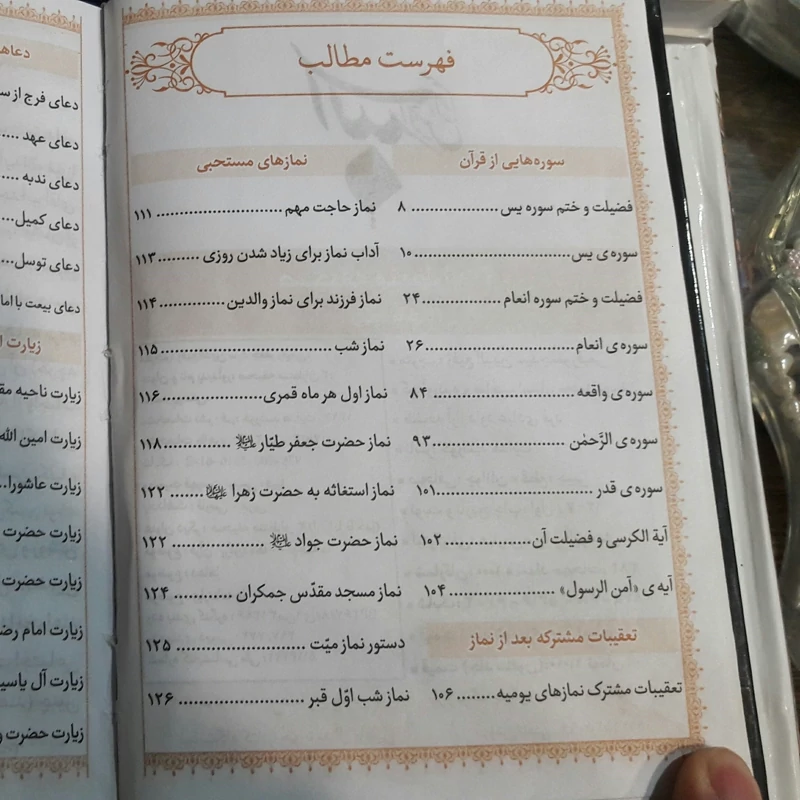 فهرست مطالب
سوره‌هایی از قرآن
فضیلت و ختم سوره یس .................... ۸
سوره‌ی یس.................................... ۱۰
فضیلت و ختم سوره انعام ............... ۲۴
سوره‌ی انعام................................ ۲۶
سوره‌ی واقعه................................ ۸۴
سوره‌ی الرَّحمٰن.............................. ۹۳
سوره‌ی قدر .................................. ۱۰۱
آیة الکرسی و فضیلت آن................. ۱۰۲
آیه‌ی «آمن الرسول» ....................... ۱۰۴
تعقیبات مشترکه بعد از نماز
تعقیبات مشترک نمازهای یومیه........ ۱۰۶
نمازهای مستحبی
نماز حاجت مهم ............................ ۱۱۱
آداب نماز برای زیاد شدن روزی ......... ۱۱۳
نماز فرزند برای نماز والدین............... ۱۱۴
نماز شب ...................................... ۱۱۵
نماز اول هر ماه قمری...................... ۱۱۶
نماز حضرت جعفر طیّار ................ ۱۱۸
نماز استغاثه به حضرت زهرا ....... ۱۲۲
نماز حضرت جواد ...................... ۱۲۲
نماز مسجد مقدّس جمکران ............ ۱۲۴
دستور نماز میّت ............................ ۱۲۵
نماز شب اوّل قبر .......................... ۱۲۶
دعای فرج از
دعای عهد .....
دعای ندبه ....
دعای کمیل...
دعای توسل...
دعای بیعت با
زیارت
زیارت ناحیه
زیارت امین الله
زیارت عاشورا..
زیارت حضرت
زیارت حضرت
زیارت امام
زیارت آل
زیارت حضرت